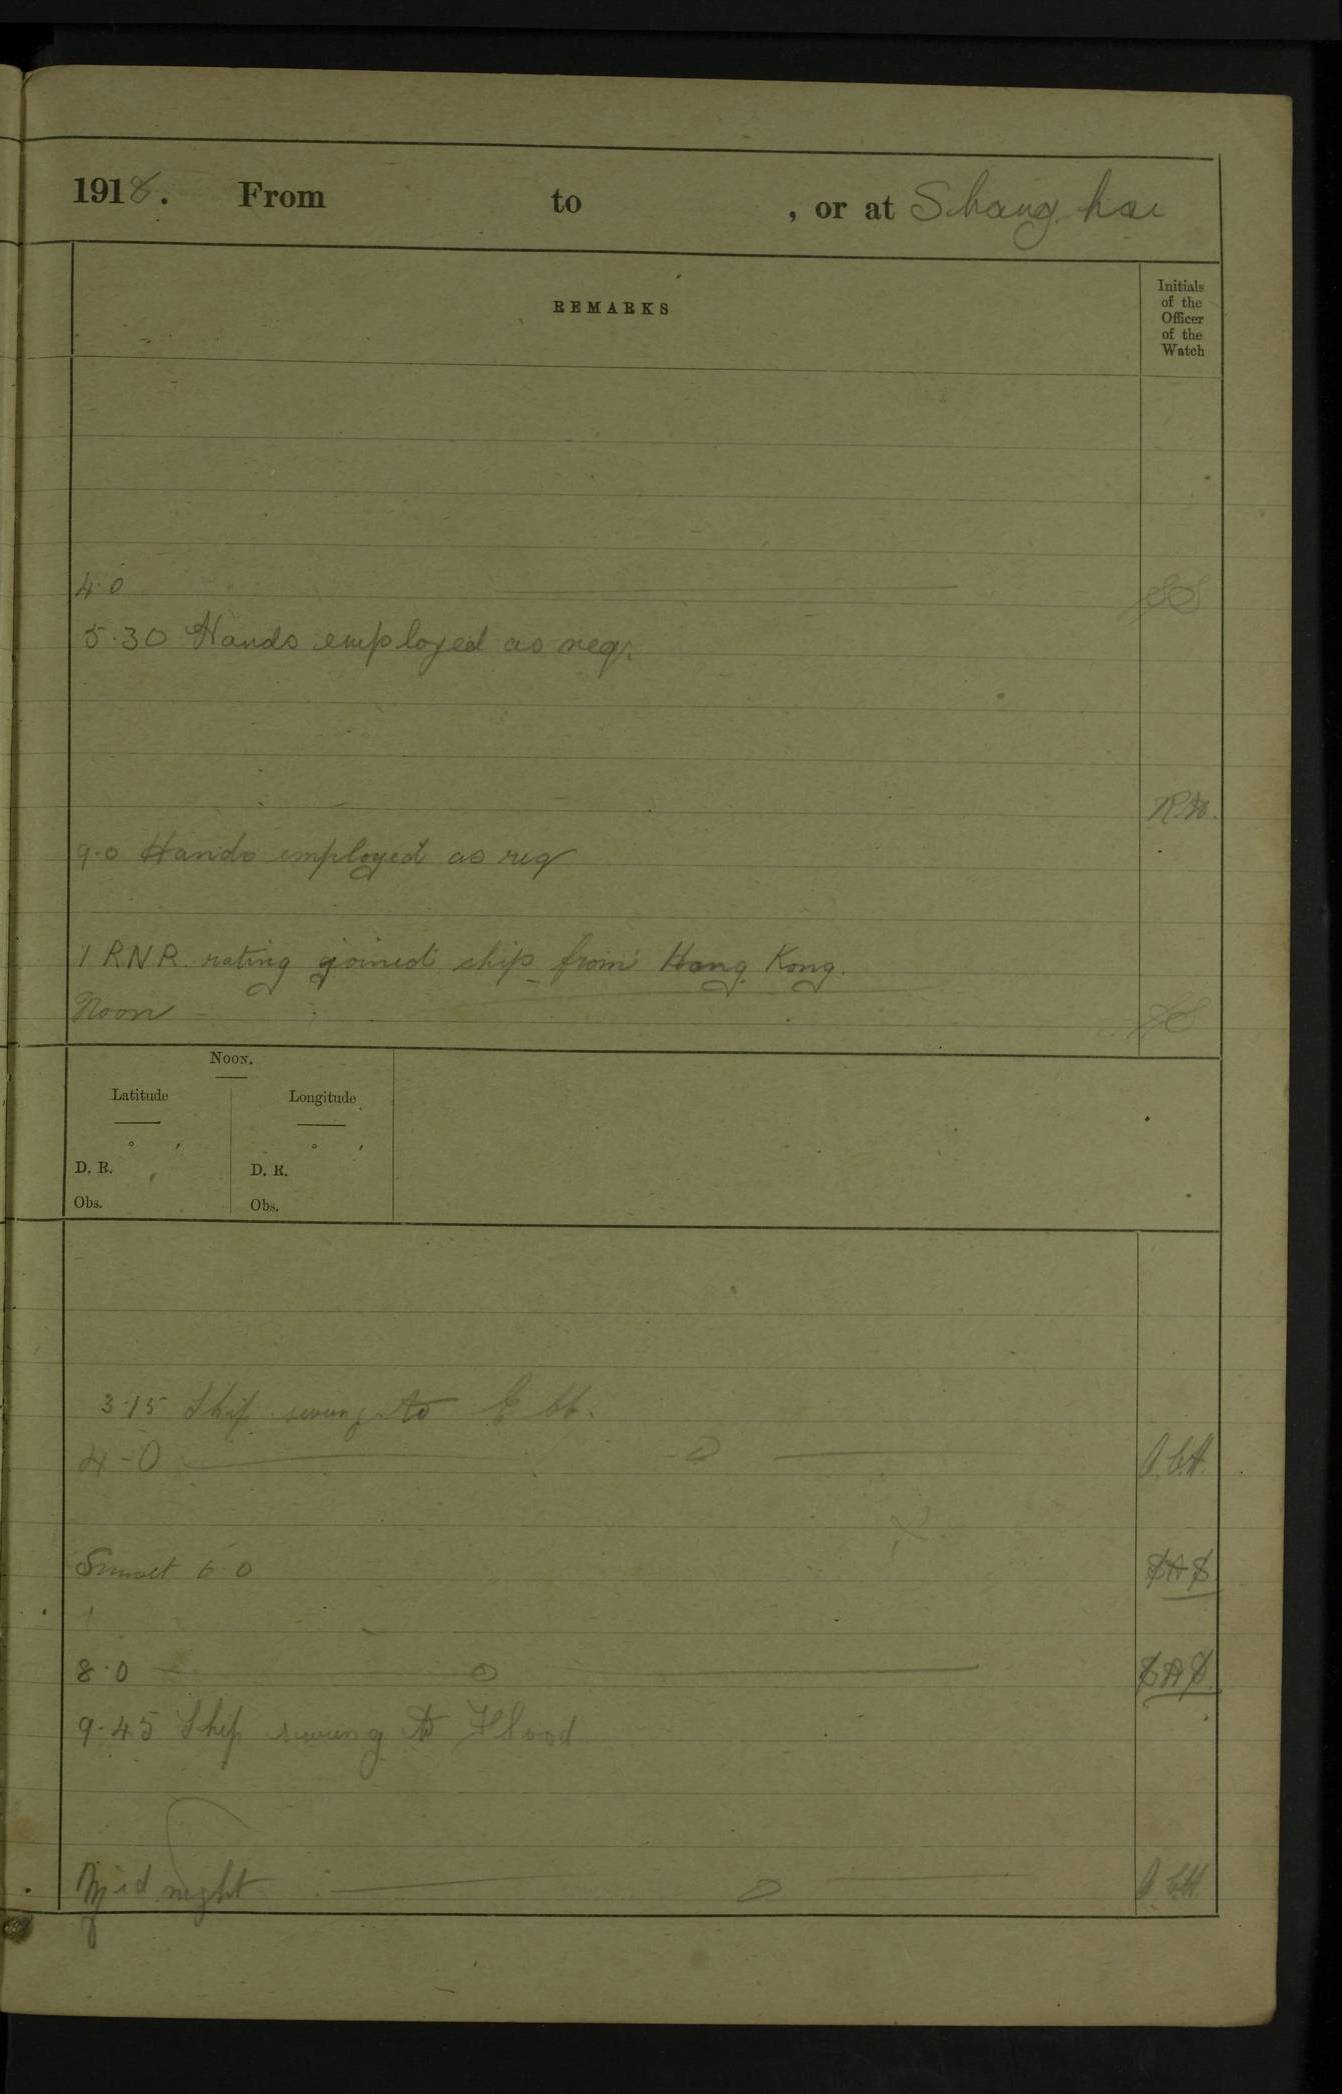 1918. From to , or at Shanghai
REMARKS
Initials
of the
Officer
of the
Watch
4.0
5.30 Hands employed as req.
9.0 Hands employed as req
1 R.N.R. rating joined ship from Hong Kong.
Noon
NOON.
Latitude Longitude
° ′ ° ′
D. R. D. R.
Obs. Obs.
3.15 Ship swung to Ebb.
4-0
Sunset 6 0
8.0
9-45 Ship swung to Flood
Midnight